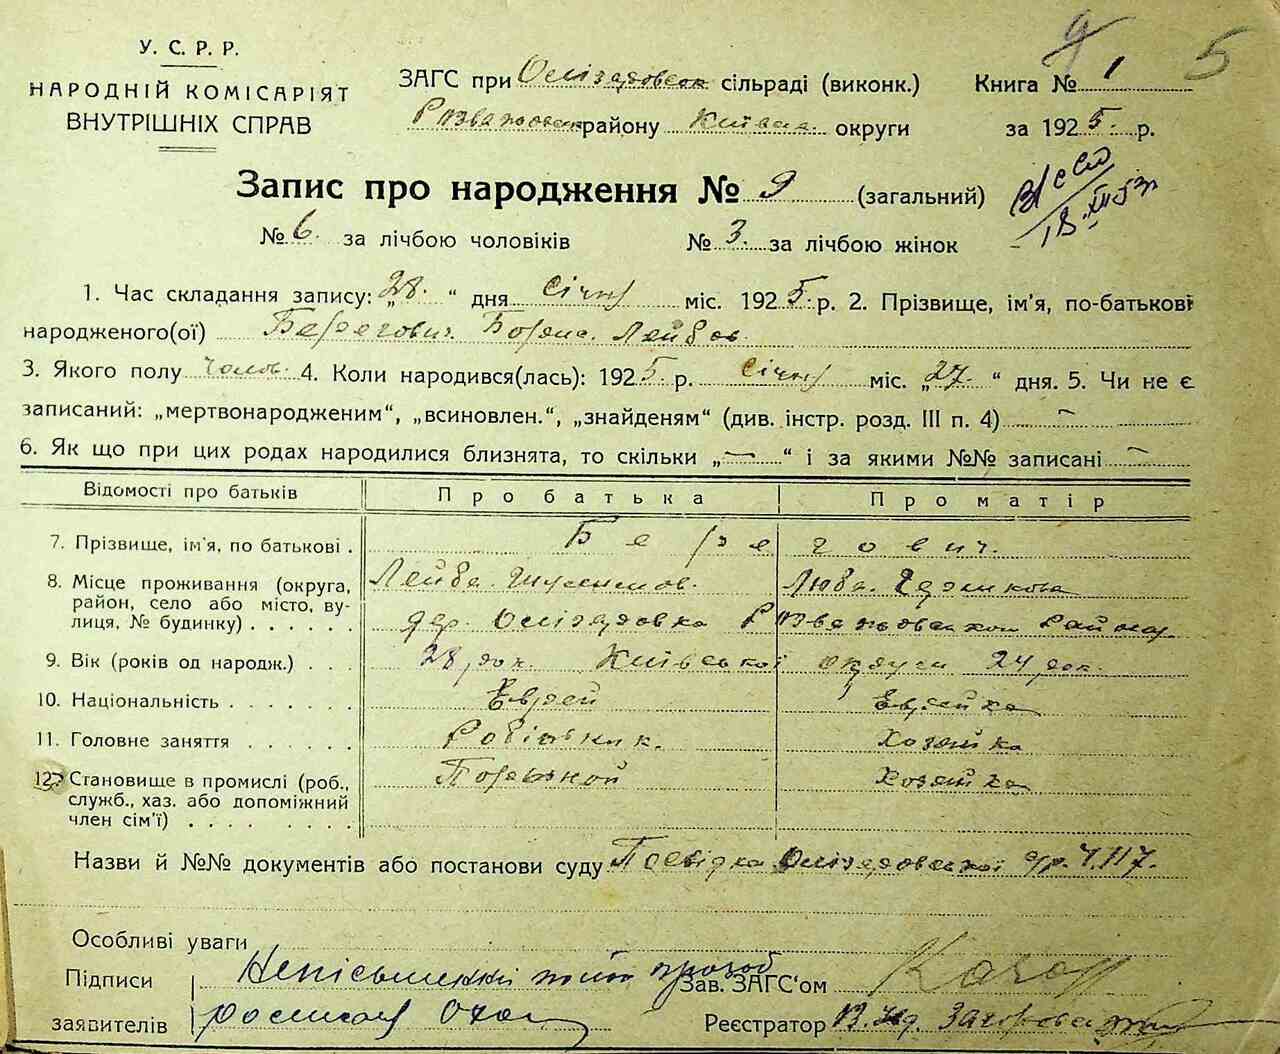 У. С. Р. Р.
НАРОДНІЙ КОМІСАРІЯТ
ВНУТРІШНІХ СПРАВ
ЗАГС при сільраді (виконк.)
району Київськ. округи
Книга № 1
5
за 1925. р.
Запис про народження № 9 (загальний)
18.XII.53
№ 6. за лічбою чоловіків № 3. за лічбою жінок
1. Час складання запису: „28.“ дня Січня міс. 1925. р. 2. Прізвище, ім'я, по-батькові
народженого(ої) Берегович. Борис. Лейбов.
3. Якого полу чолов. 4. Коли народився(лась): 1925. р. Січня міс. „27.“ дня. 5. Чи не є
записаний: „мертвонародженим“, „всиновлен.“, „знайденям“ (див. інстр. розд. III п. 4) —
6. Як що при цих родах народилися близнята, то скільки „—“ і за якими №№ записані —
Відомості про батьків Про батька Про матір
7. Прізвище, ім'я, по батькові . Берегович.
8. Місце проживання (округа, район, село або місто, вулиця, № будинку) . . . . . Лейба. Люба.
дер.
9. Вік (років од народж.) . . . 28 рок. Київської округи 24 рок.
10. Національність . . . . . . . Еврей Еврейка
11. Головне заняття . . . . . . Робітник. Хозяйка
12. Становище в промислі (роб., служб., хаз. або допоміжний член сім'ї) . . . . . . . . Хозяйка
Назви й №№ документів або постанови суду Посвідка Ч. 117.
Особливі уваги
Підписи
заявителів
Зав. ЗАГС'ом
Реєстратор